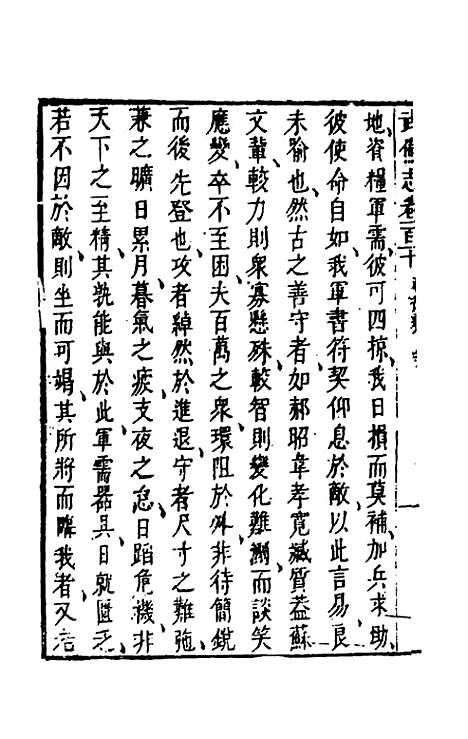 武備志卷一百十
地資糧軍需彼可四掠我日損而莫補加兵求助
彼使命自如我軍書符契仰息於敵以此言易良
未喻也然古之善守者如郝昭韋孝寬臧質葢蘇
文輩較力則衆寡懸殊較智則變化難測而談笑
應變卒不至困夫百萬之衆環阻於外非待簡銳
而後先登也攻者綽然於進退守者尺寸之難弛
兼之曠日累月暮氣之疲支夜之怠日蹈危機非
天下之至精其孰能與於此軍需器具日就匱乏
若不因於敵則坐而可竭其所將而臨我者又